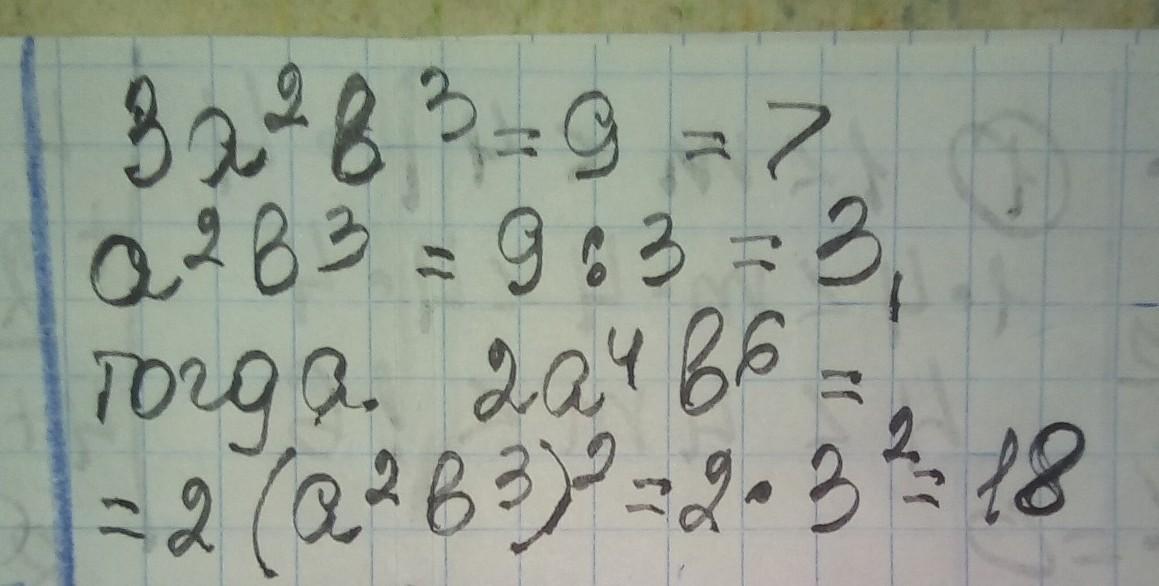 3a²b³ = 9 = >
a²b³ = 9 : 3 = 3,
тогда. 2a⁴b⁶ =
= 2(a²b³)² = 2 · 3² = 18